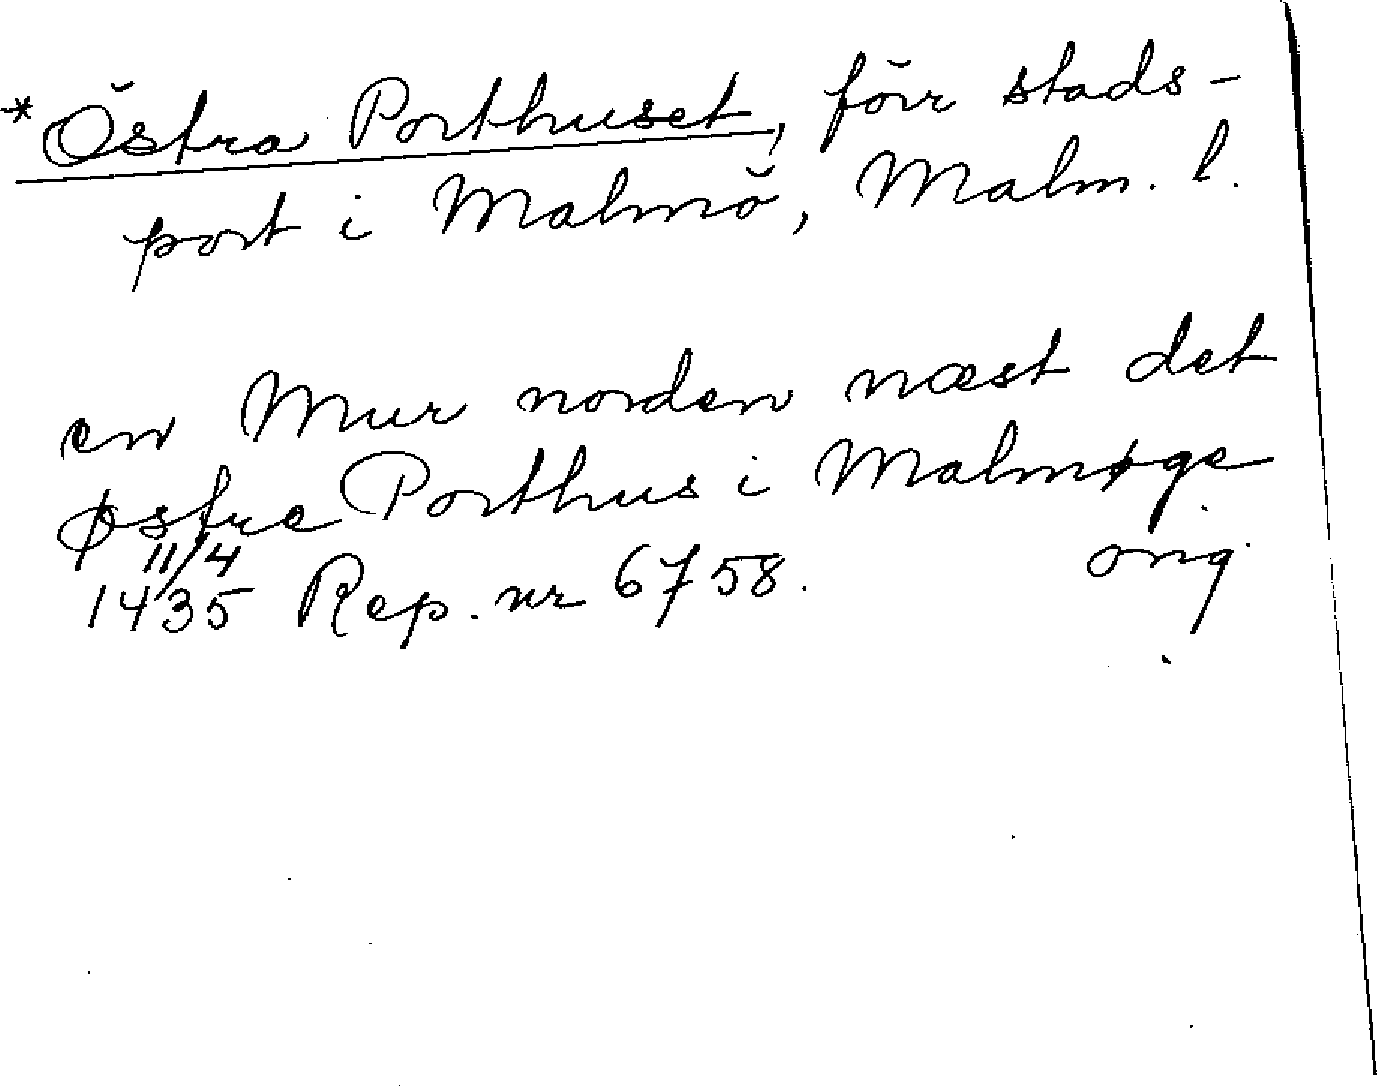 * Östra Porthuset, förr stads-
port i Malmö, Malm. l.
en Mur norden næst det
østre Porthus i Malmøge
11/4
1435 Rep. nr 6758. orig